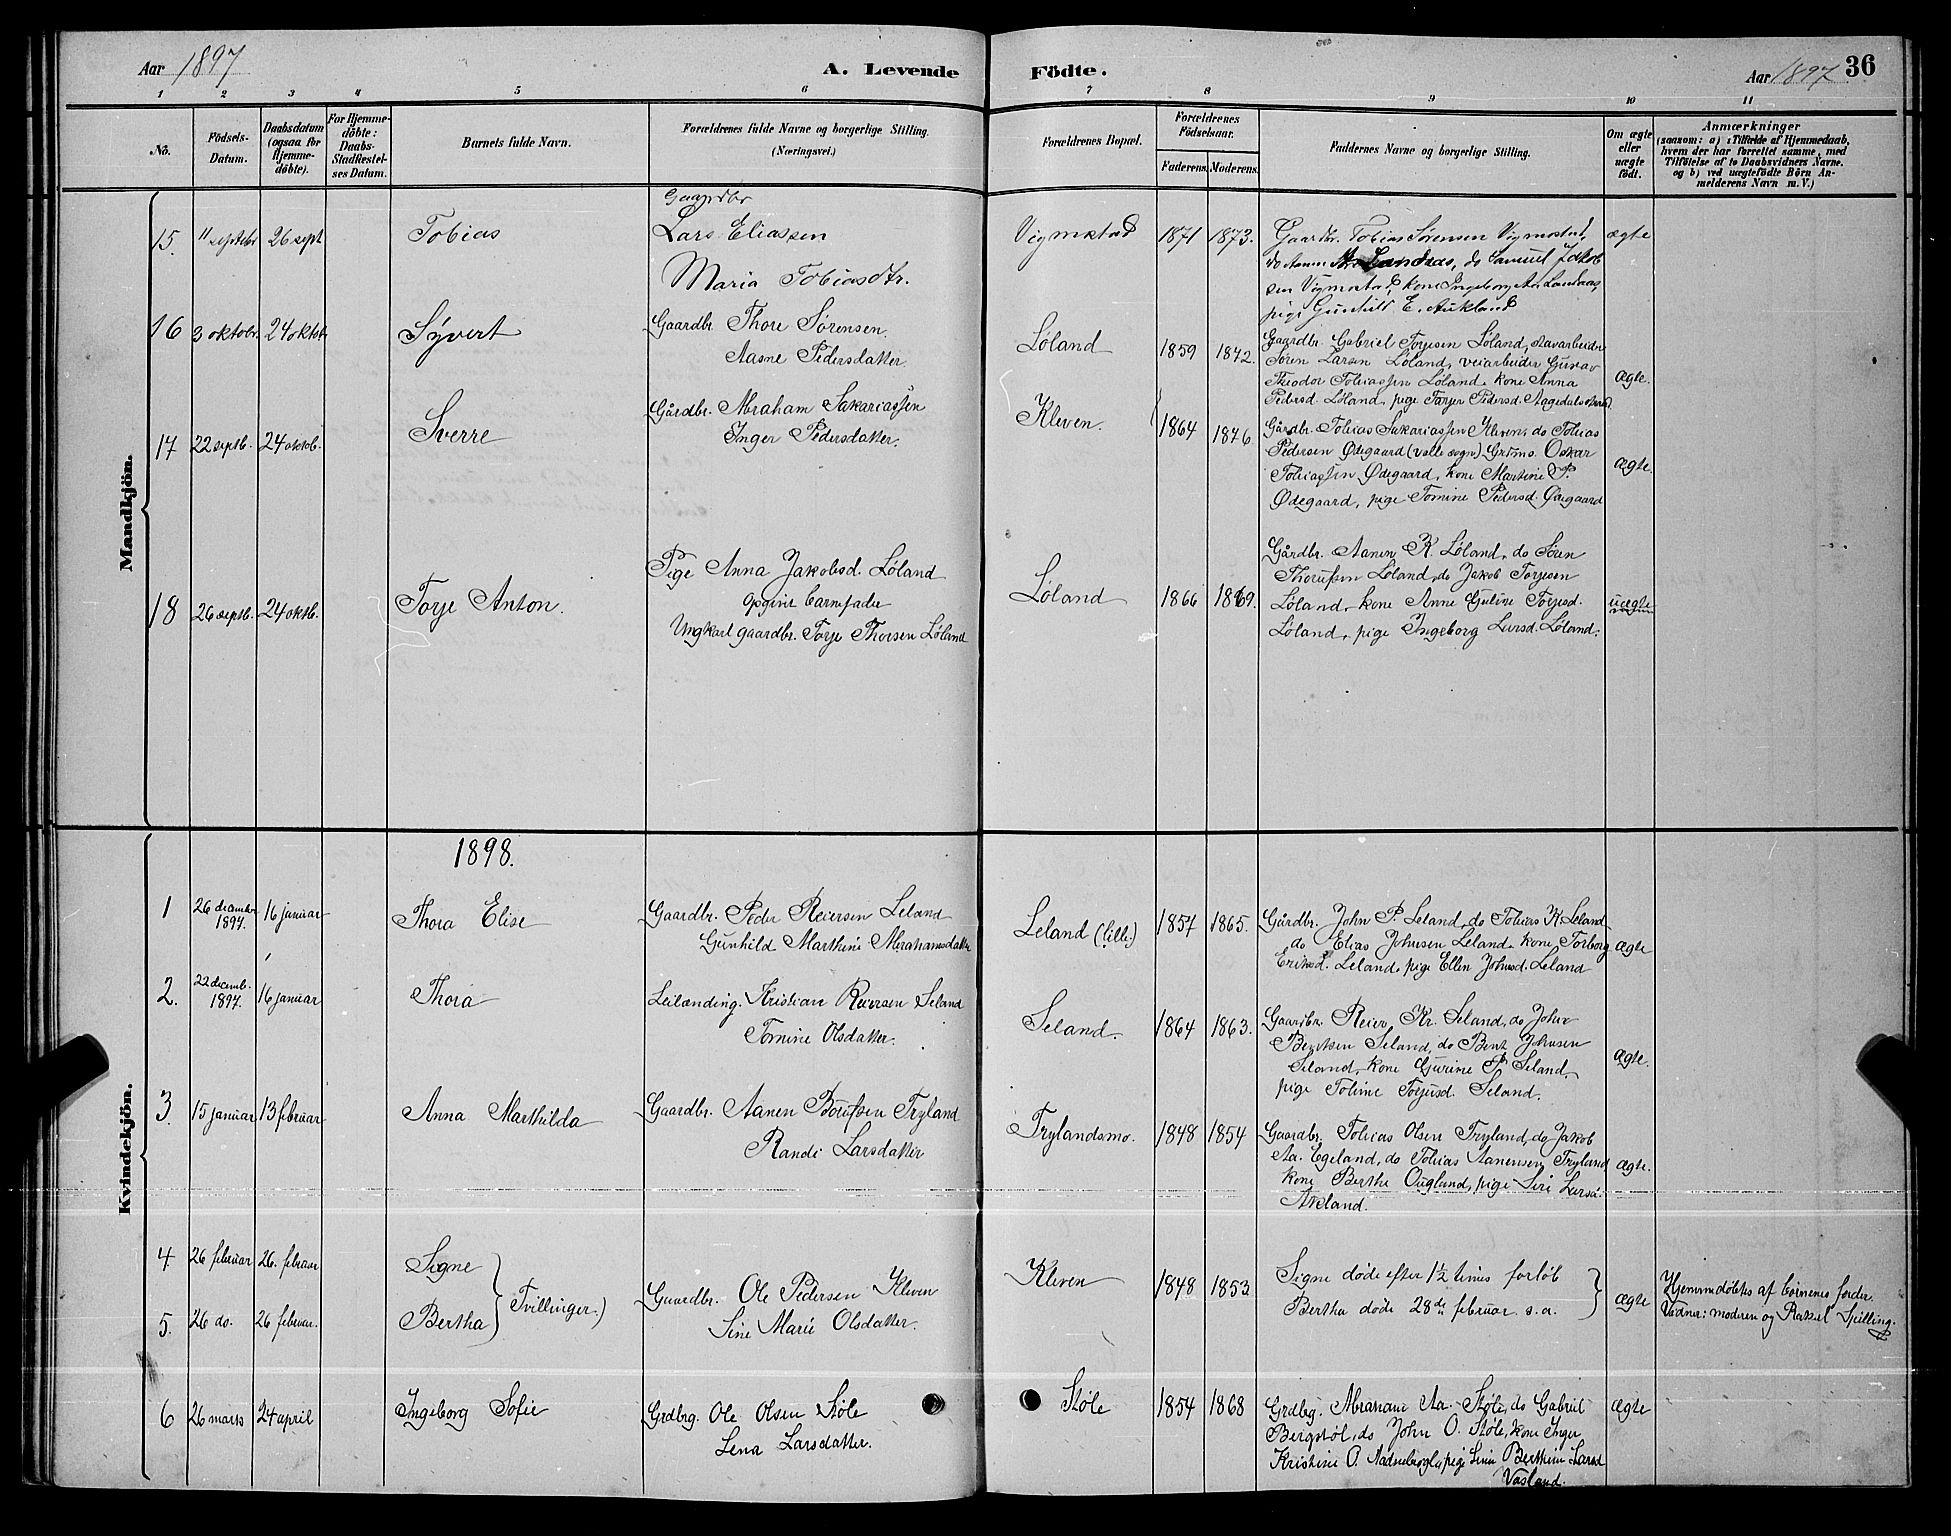 Aar 1897
A. Levende
Födte.
Aar 1897
36
1 2 3 4 5 6 7 8 9 10 11
No.
Födsels-
Datum.
Daabsdatum
(ogsaa for
Hjemme-
döbte).
For Hjemme-
döbte:
Daabs-
Stadfæstel-
ses Datum.
Barnets fulde Navn.
Forældrenes fulde Navne og borgerlige Stilling.
(Næringsvei.)
Forældrenes Bopæl.
Forældrenes
Födselsaar.
Faderens. Moderens.
Faddernes Navne og borgerlige Stilling.
Om ægte
eller
uægte
födt.
Anmærkninger
(saasom: a) i Tilfælde af Hjemmedaab,
hvem der har forrettet samme, med
Tilföielse af to Daabsvidners Navne.
og b) ved uægtefödte Börn An-
melderens Navn m. V.)
Mandkjön.
15. 11 septebr 26 sept
Tobias
Gaardbr
Lars Eliassen
Maria Tobiasdtr.
Vigmostad
1871 1873.
Gaardbr. Tobias Sørensen Vigmostad,
do Aanen Landaas, do Samuel Jakob
sen Vigmostad, kone Ingeborg Aa. Landaas,
pige Gunhild E. Aukland
ægte
16 3 oktobr. 24 oktobr
Syvert
Gaardbr. Thore Sørensen
Aasne Pedersdatter
Løland
1859 1842.
Gaardbr. Gabriel Torjesen Løland, stavarbeider
Søren Larsen Løland, veiarbeider Gustav
Theodor Tobiassen Løland, kone Anna
Pedersd. Løland, pige Torjer Pedersd. Aagedalstrand.
ægte.
17 22 septb. 24 oktob.
Sverre
Gårdbr. Abraham Sakariassen
Inger Pedersdatter.
Kleven.
1864 1876.
Gårdbr. Tobias Sakariassen Kleven, do Tobias
Pedersen Ødegaard (valle sogn). Grdms. Oskar
Tobiassen Ødegaard, kone Martine P.
Ødegaard, pige Tomine Pedersd. Ødegaard
ægte.
18 26 septb. 24 oktb.
Torje Anton.
Pige Anna Jakobsd. Løland
opgivet barnefader
Ungkarl gaardbr. Torje Thorsen Løland
Løland
1866 1869.
Gårdbr. Aanen K. Løland, do Søren
Thorussen Løland, do Jakob Torjesen
Løland, kone Anne Guline Torjesd.
Løland, pige Ingeborg Larsd. Løland.
uægte
Kvindekjön.
1898.
1 26 december 1897. 16 januar
Thora Elise
Gaardbr. Peder Reiersen Leland
Gunhild Marthine Abrahamsdatter
Leland (lille.)
1857 1865.
Gårdbr. John P. Leland, do Tobias K. Leland
do Elias Johnsen Leland, kone Torborg
Eriksd. Leland, pige Ellen Johnsd. Leland
ægte
2. 22 decemb. 1897. 16 januar
Thora
Leilænding. Kristian Reiersen Seland
Tomine Olsdatter.
Seland.
1864 1863.
Gaardbr. Reier Kr. Seland, do John
Bentsen Seland, do Bent Johnsen
Seland, kone Gjurine P. Seland,
pige Toline Torjusd. Seland.
ægte.
3. 15 januar 13 februar
Anna Marthilda
Gaardbr. Aanen Borufsen Tryland
Randi Larsdatter
Trylandsmo.
1848 1854
Gaardbr. Tobias Olsen Tryland, do Jakob
Aa. Egeland, do Tobias Aanensen Tryland
kone Berthe Ougland, pige Siri Larsd.
Akland.
ægte.
4. 26 februar 26. februar
Signe
5. 26 do. 26 februar.
Bertha
Tvillinger.)
Gaardbr. Ole Pedersen Kleven
Sine Marie Olsdatter.
Kleven
1848 1853
Signe døde efter 1½ times forløb
Bertha døde 28de februar s. a.
ægte
Hjemmedøbtes af børnenes fader.
Vidner: moderen og Rakel Spilling.
6 26 marts 24 april
Ingeborg Sofie
Grdbrg. Ole Olsen Støle
Lena Larsdatter.
Støle
1854 1868
Grdbrg. Abraham Aa. Støle, do Gabriel
Bergstøl, do John O. Støle, kone Inger
Kristine O. pige Sina Berthine Larsd
Vasland.
ægte